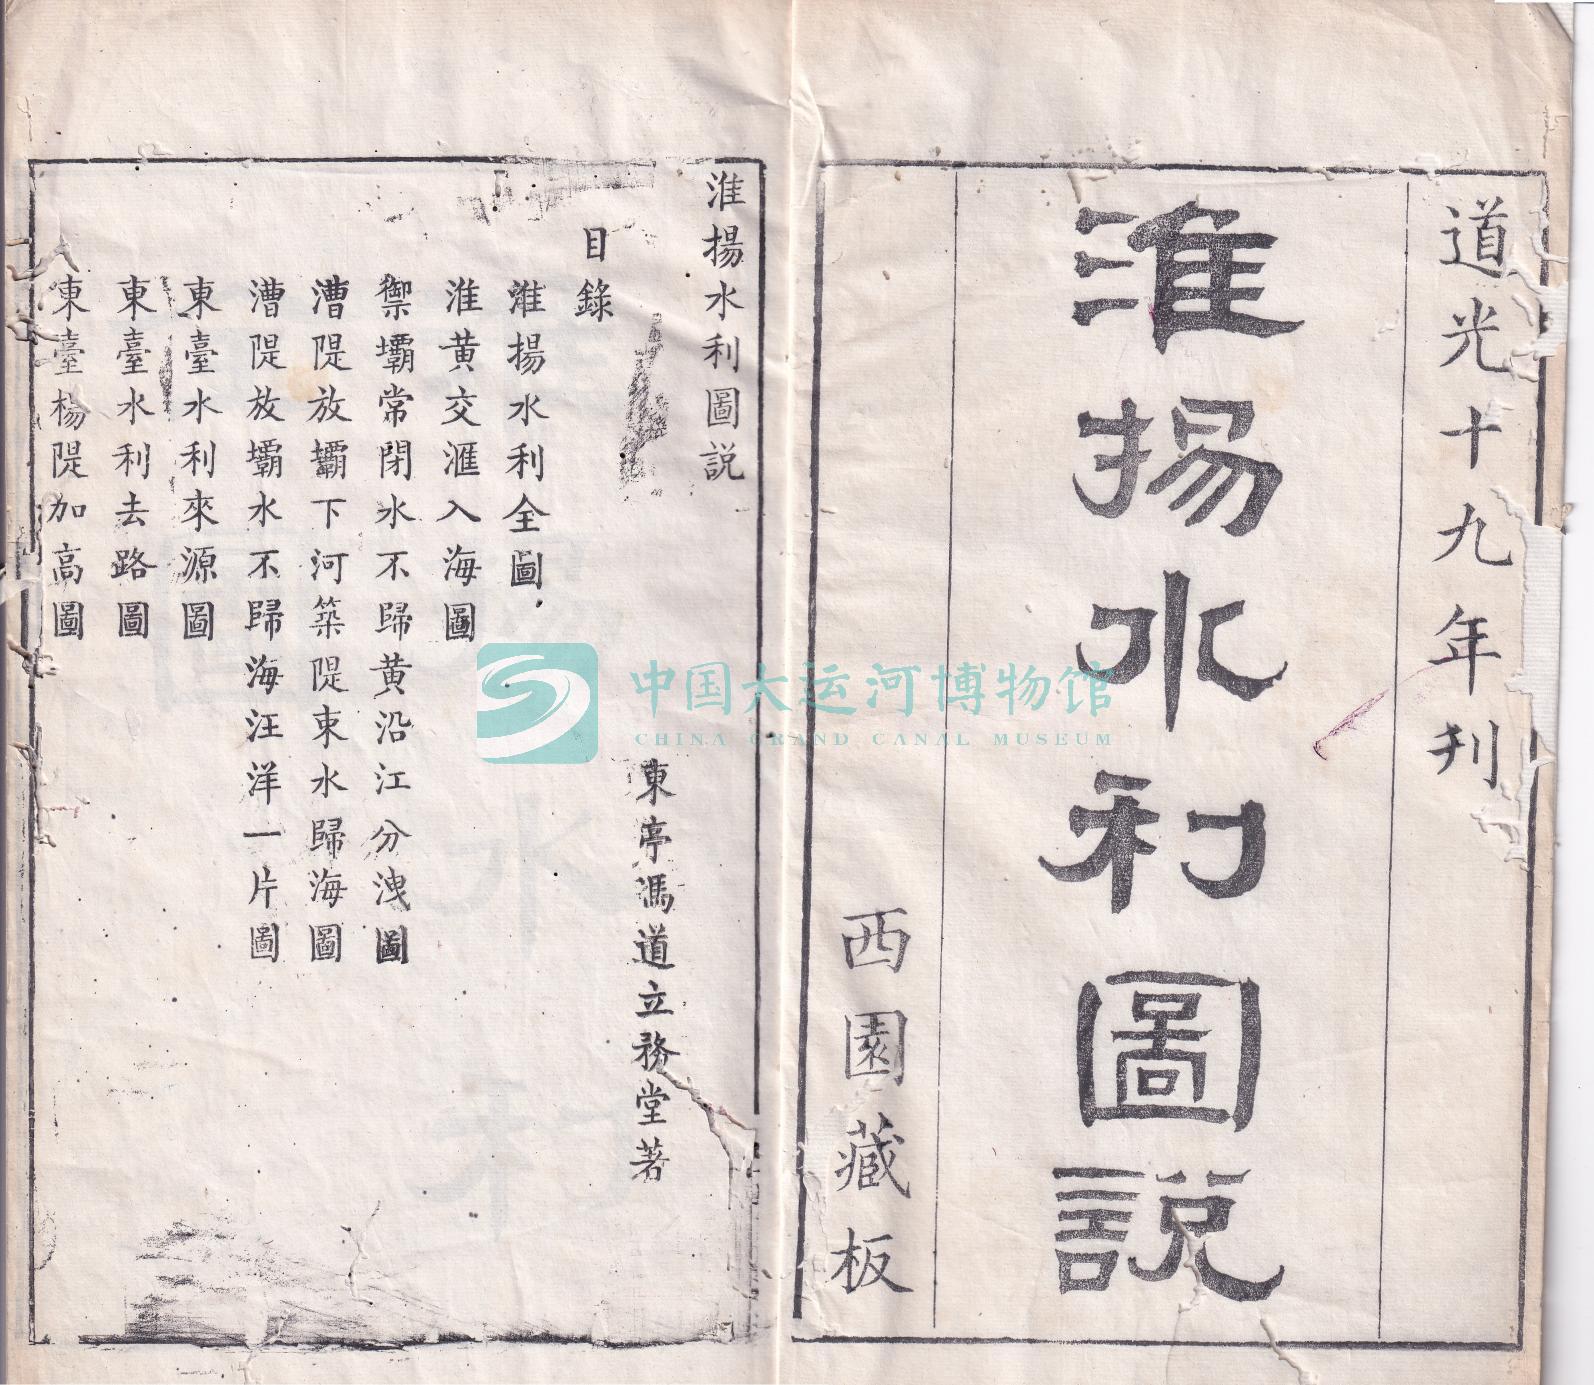 道光十九年刋
淮揚水利圖說
西園藏板
淮揚水利圖説
東亭馮道立務堂著
目錄
淮揚水利全圖
淮黄交滙入海圖
禦壩常閉水不歸黄沿江分洩圖
漕隄放壩下河築隄束水歸海圖
漕隄放壩水不歸海汪洋一片圖
東臺水利來源圖
東臺水利去路圖
東臺楊隄加高圖
中国大运河博物馆
CHINA GRAND CANAL MUSEUM